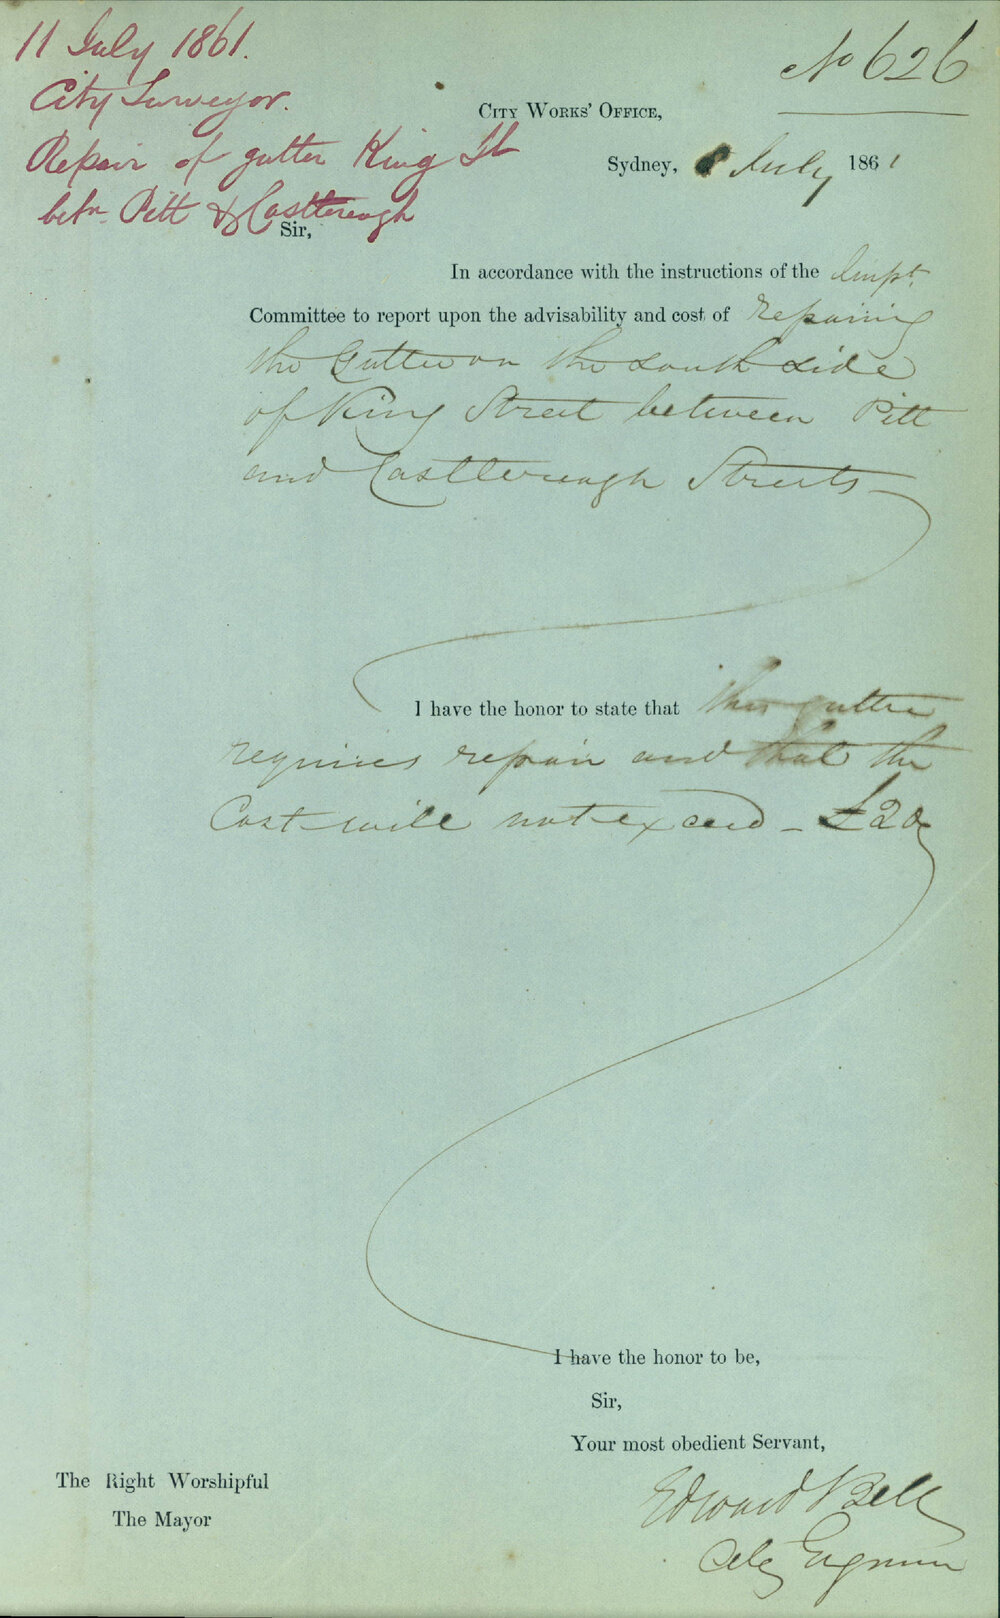 11 July 1861.
City Surveyor.
Repair of gutter King St
betn. Pitt & Castlereagh
No 626
City Works' Office,
Sydney, 8 July 1861
Sir,
In accordance with the instructions of the Impt.
Committee to report upon the advisability and cost of repairing
the Gutter on the south side
of King Street between Pitt
and Castlereagh Streets
I have the honor to state that this gutter
requires repair and that the
Cost will not exceed - £20
I have the honor to be,
Sir,
Your most obedient Servant,
Edward Bell
City Engineer
The Right Worshipful
The Mayor